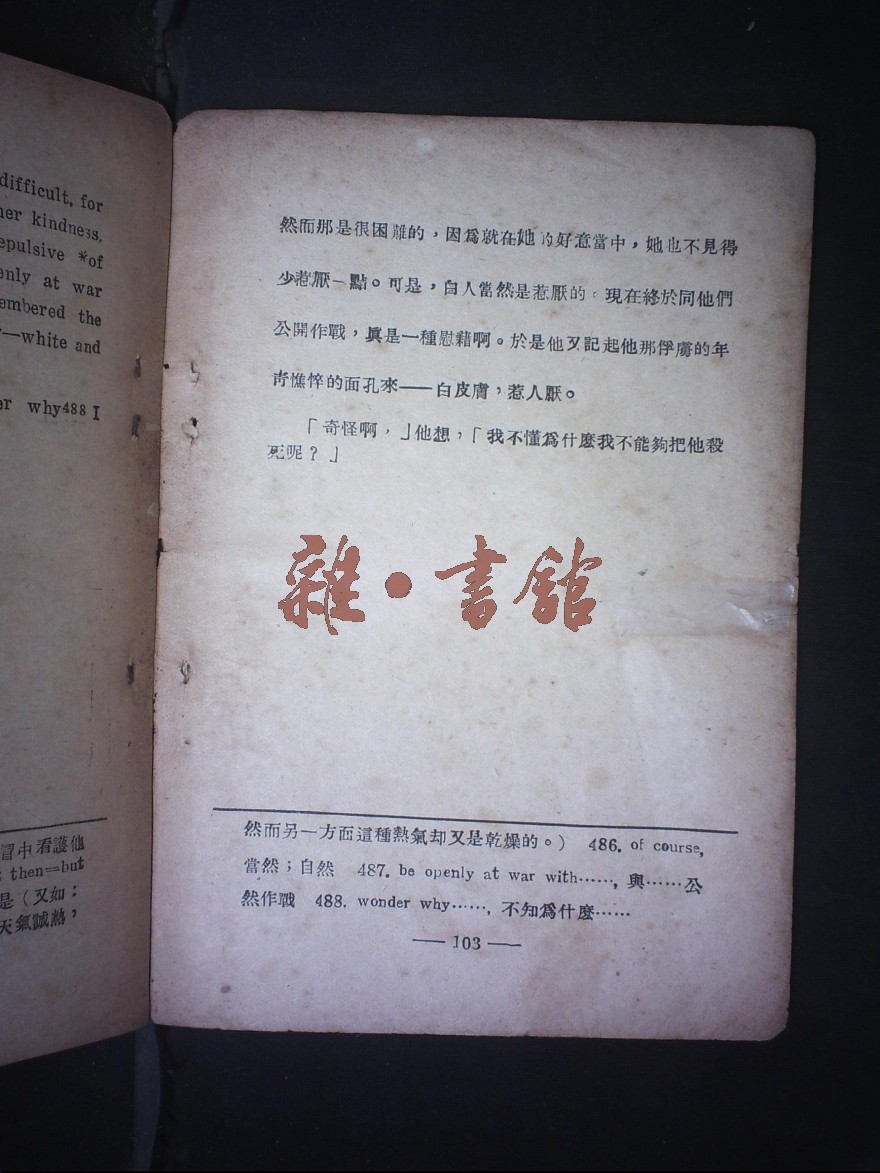 difficult, for
her kindness,
epulsive *of
enly at war
embered the
—white and
er why488 I
冒中看護他
; then=but
是（又如：
天氣誠熱，
然而那是很困難的，因爲就在她的好意當中，她也不見得
少惹厭一點。可是，白人當然是惹厭的。現在終於同他們
公開作戰，眞是一種慰藉啊。於是他又記起他那俘虜的年
靑憔悴的面孔來——白皮膚，惹人厭。
「奇怪啊，」他想，「我不懂爲什麼我不能夠把他殺
死呢？」
雜·書館
然而另一方面這種熱氣却又是乾燥的。） 486. of course,
當然；自然 487. be openly at war with……, 與……公
然作戰 488. wonder why……, 不知爲什麼……
— 103 —